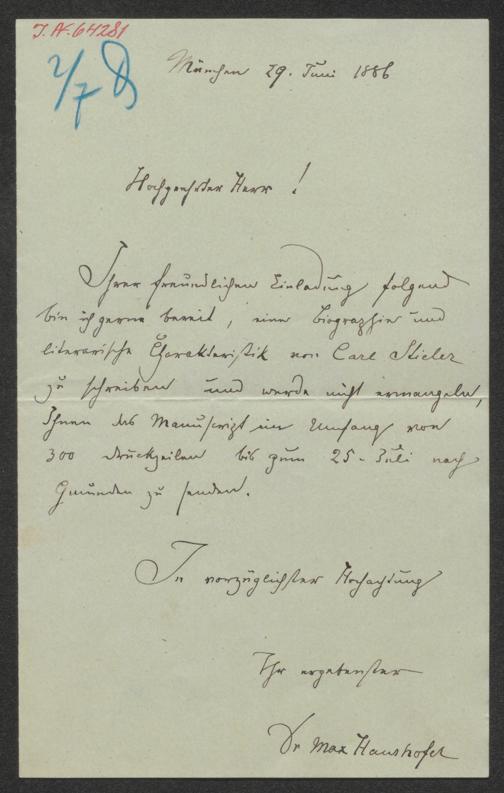 I. N. 64281
2/7
München 29. Juni 1886
Hochgeehrter Herr!
Ihrer freundlichen Einladung folgend
bin ich gerne bereit, eine Biographie und
literarische Charakteristik von Carl Stieler
zu schreiben und werde nicht ermangeln,
Ihnen das Manuscript im Umfang von
300 Druckzeilen bis zum 25. Juli nach
Gmunden zu senden.
In vorzüglichster Hochachtung
Ihr ergebenster
Dr Max Haushofer